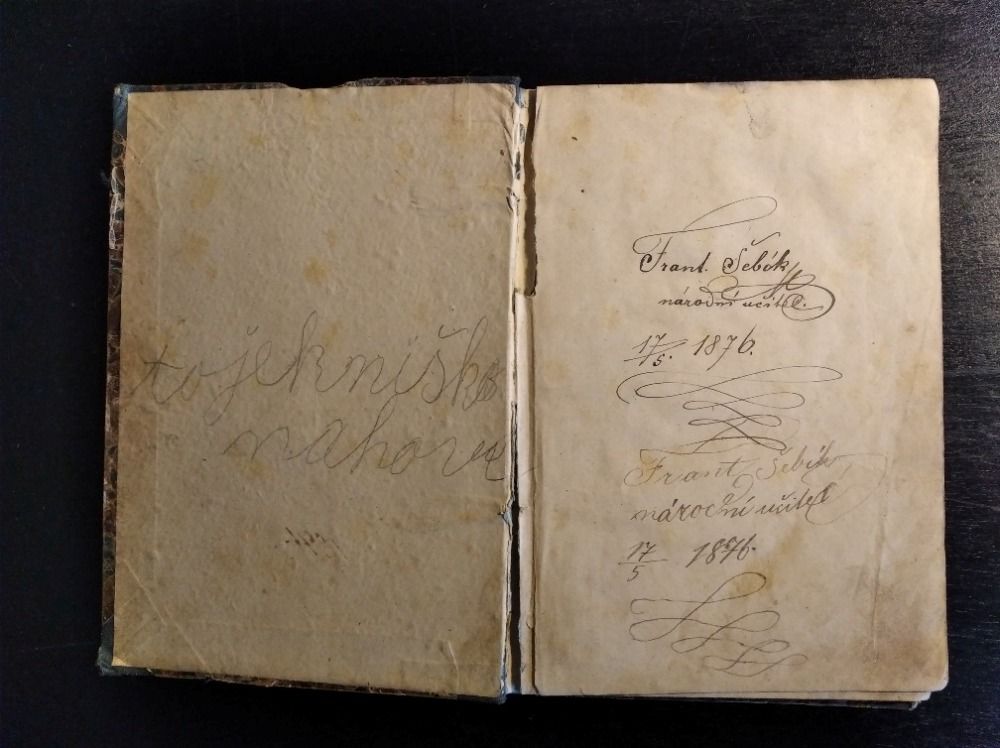 to je kniška
nahoře
Frant. Šebék
národní učitel.
17/5. 1876.
Frant Šebék
národní učitel
17/5 1876.